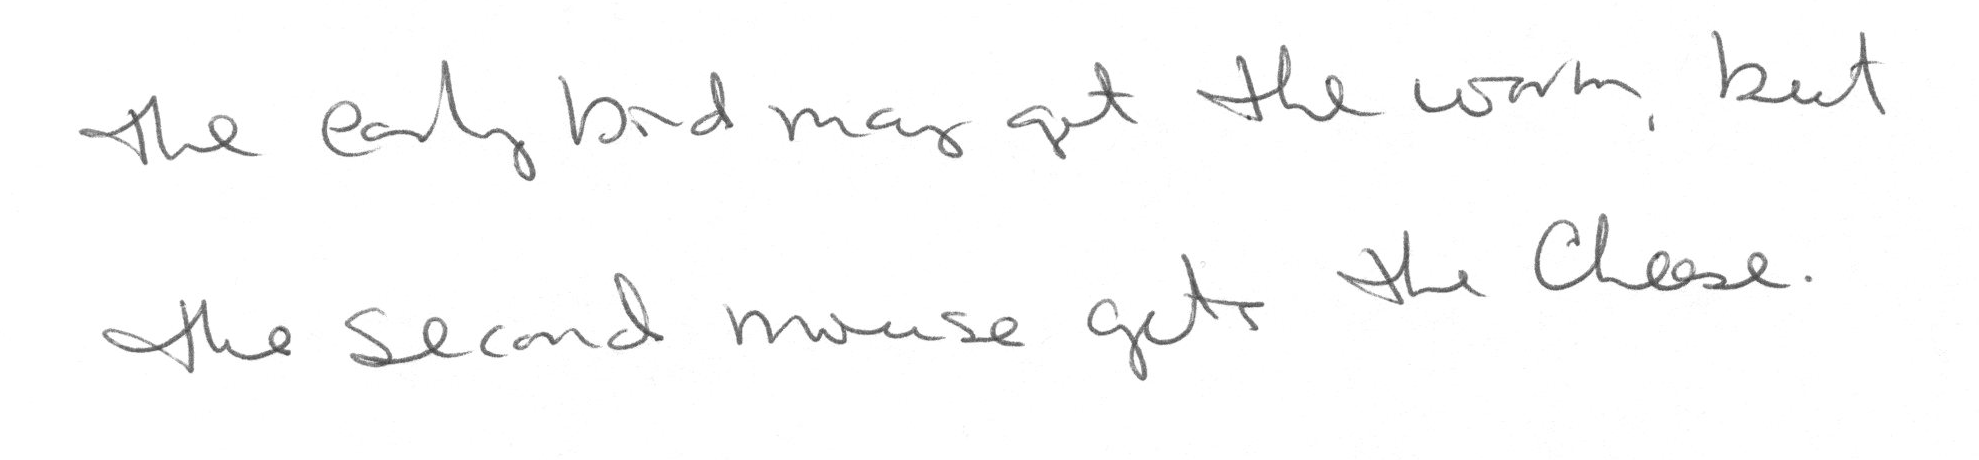 the early bird may get the worm, but
the second mouse gets the Cheese.